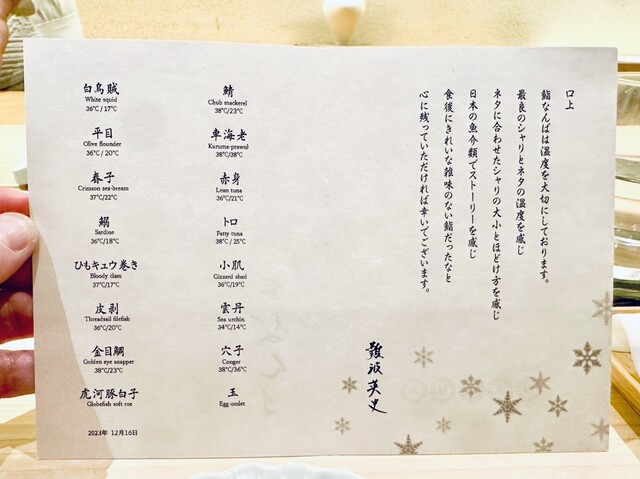 白烏賊
White squid
36℃/17℃
平目
Olive flounder
36℃/20℃
春子
Crimson sea-bream
37℃/22℃
鰯
Sardine
36℃/18℃
ひもキュウ巻き
Bloody clam
37℃/17℃
皮剥
Threadsail filefish
36℃/20℃
金目鯛
Golden eye snapper
38℃/23℃
虎河豚白子
Globefish soft roe
2023年 12月16日
鯖
Chub mackerel
38℃/23℃
車海老
Kuruma-prawn
38℃/38℃
赤身
Lean tuna
36℃/21℃
トロ
Fatty tuna
38℃/25℃
小肌
Gizzard shad
36℃/19℃
雲丹
Sea urchin
34℃/14℃
穴子
Conger
38℃/36℃
玉
Egg omlet
口上
鮨なんばは温度を大切にしております。
最良のシャリとネタの温度を感じ
ネタに合わせたシャリの大小とほどけ方を感じ
日本の魚介類でストーリーを感じ
食後にきれいな雑味のない鮨だったなと
心に残っていただければ幸いでございます。
難波英史